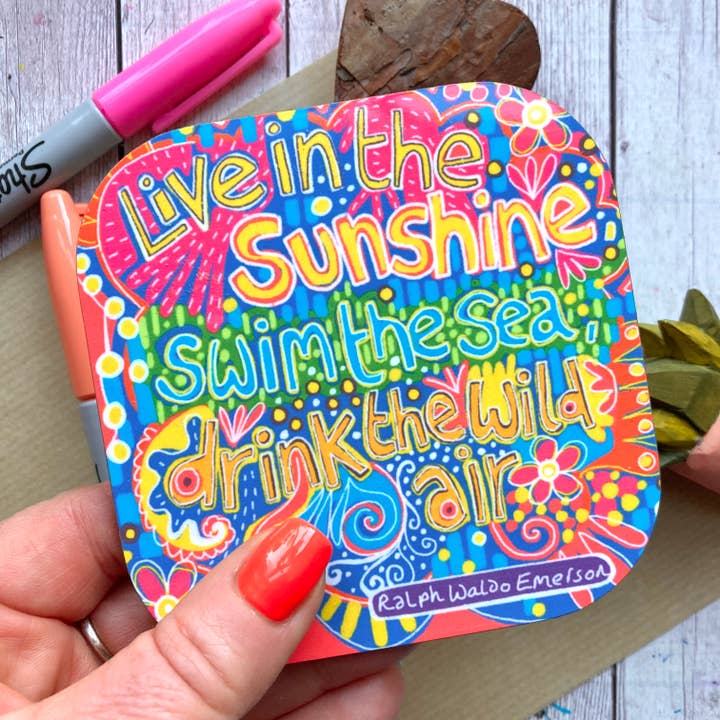 Live in the
Sunshine
Swim the sea,
drink the wild
air
Ralph Waldo Emerson